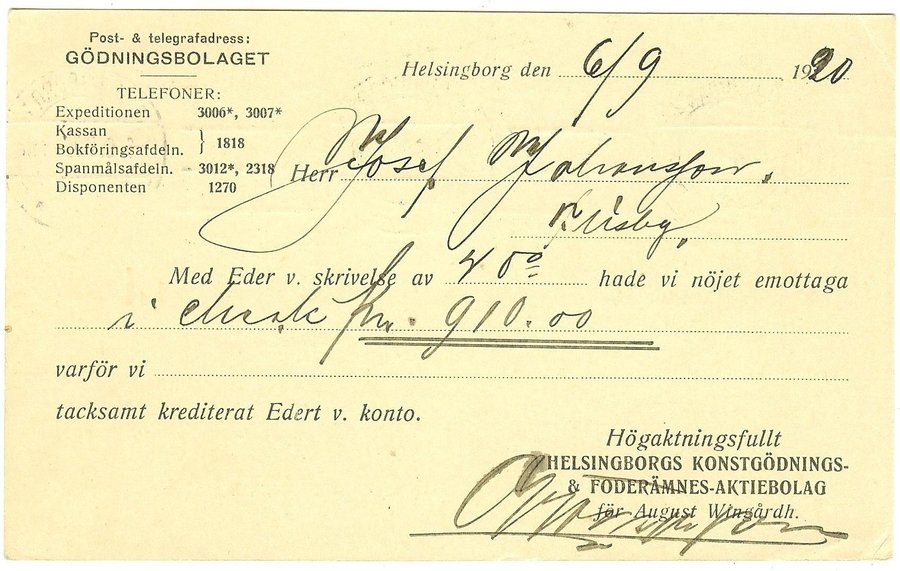 Post- & telegrafadress:
GÖDNINGSBOLAGET
Helsingborg den 6/9 1920
TELEFONER:
Expeditionen 3006*, 3007*
Kassan
Bokföringsafdeln. } 1818
Spanmålsafdeln. 3012*, 2318
Disponenten 1270
Herr Josef Johansson.
Med Eder v. skrivelse av hade vi nöjet emottaga
i check Kr. 910.00
varför vi
tacksamt krediterat Edert v. konto.
Högaktningsfullt
HELSINGBORGS KONSTGÖDNINGS-
& FODERÄMNES-AKTIEBOLAG
för August Wingårdh.